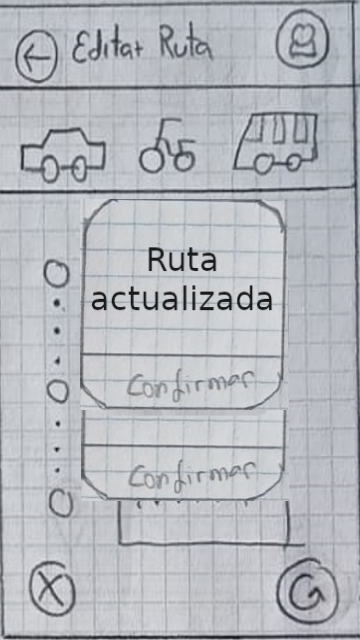 Editar Ruta
Ruta
actualizada
Confirmar
Confirmar
X
G